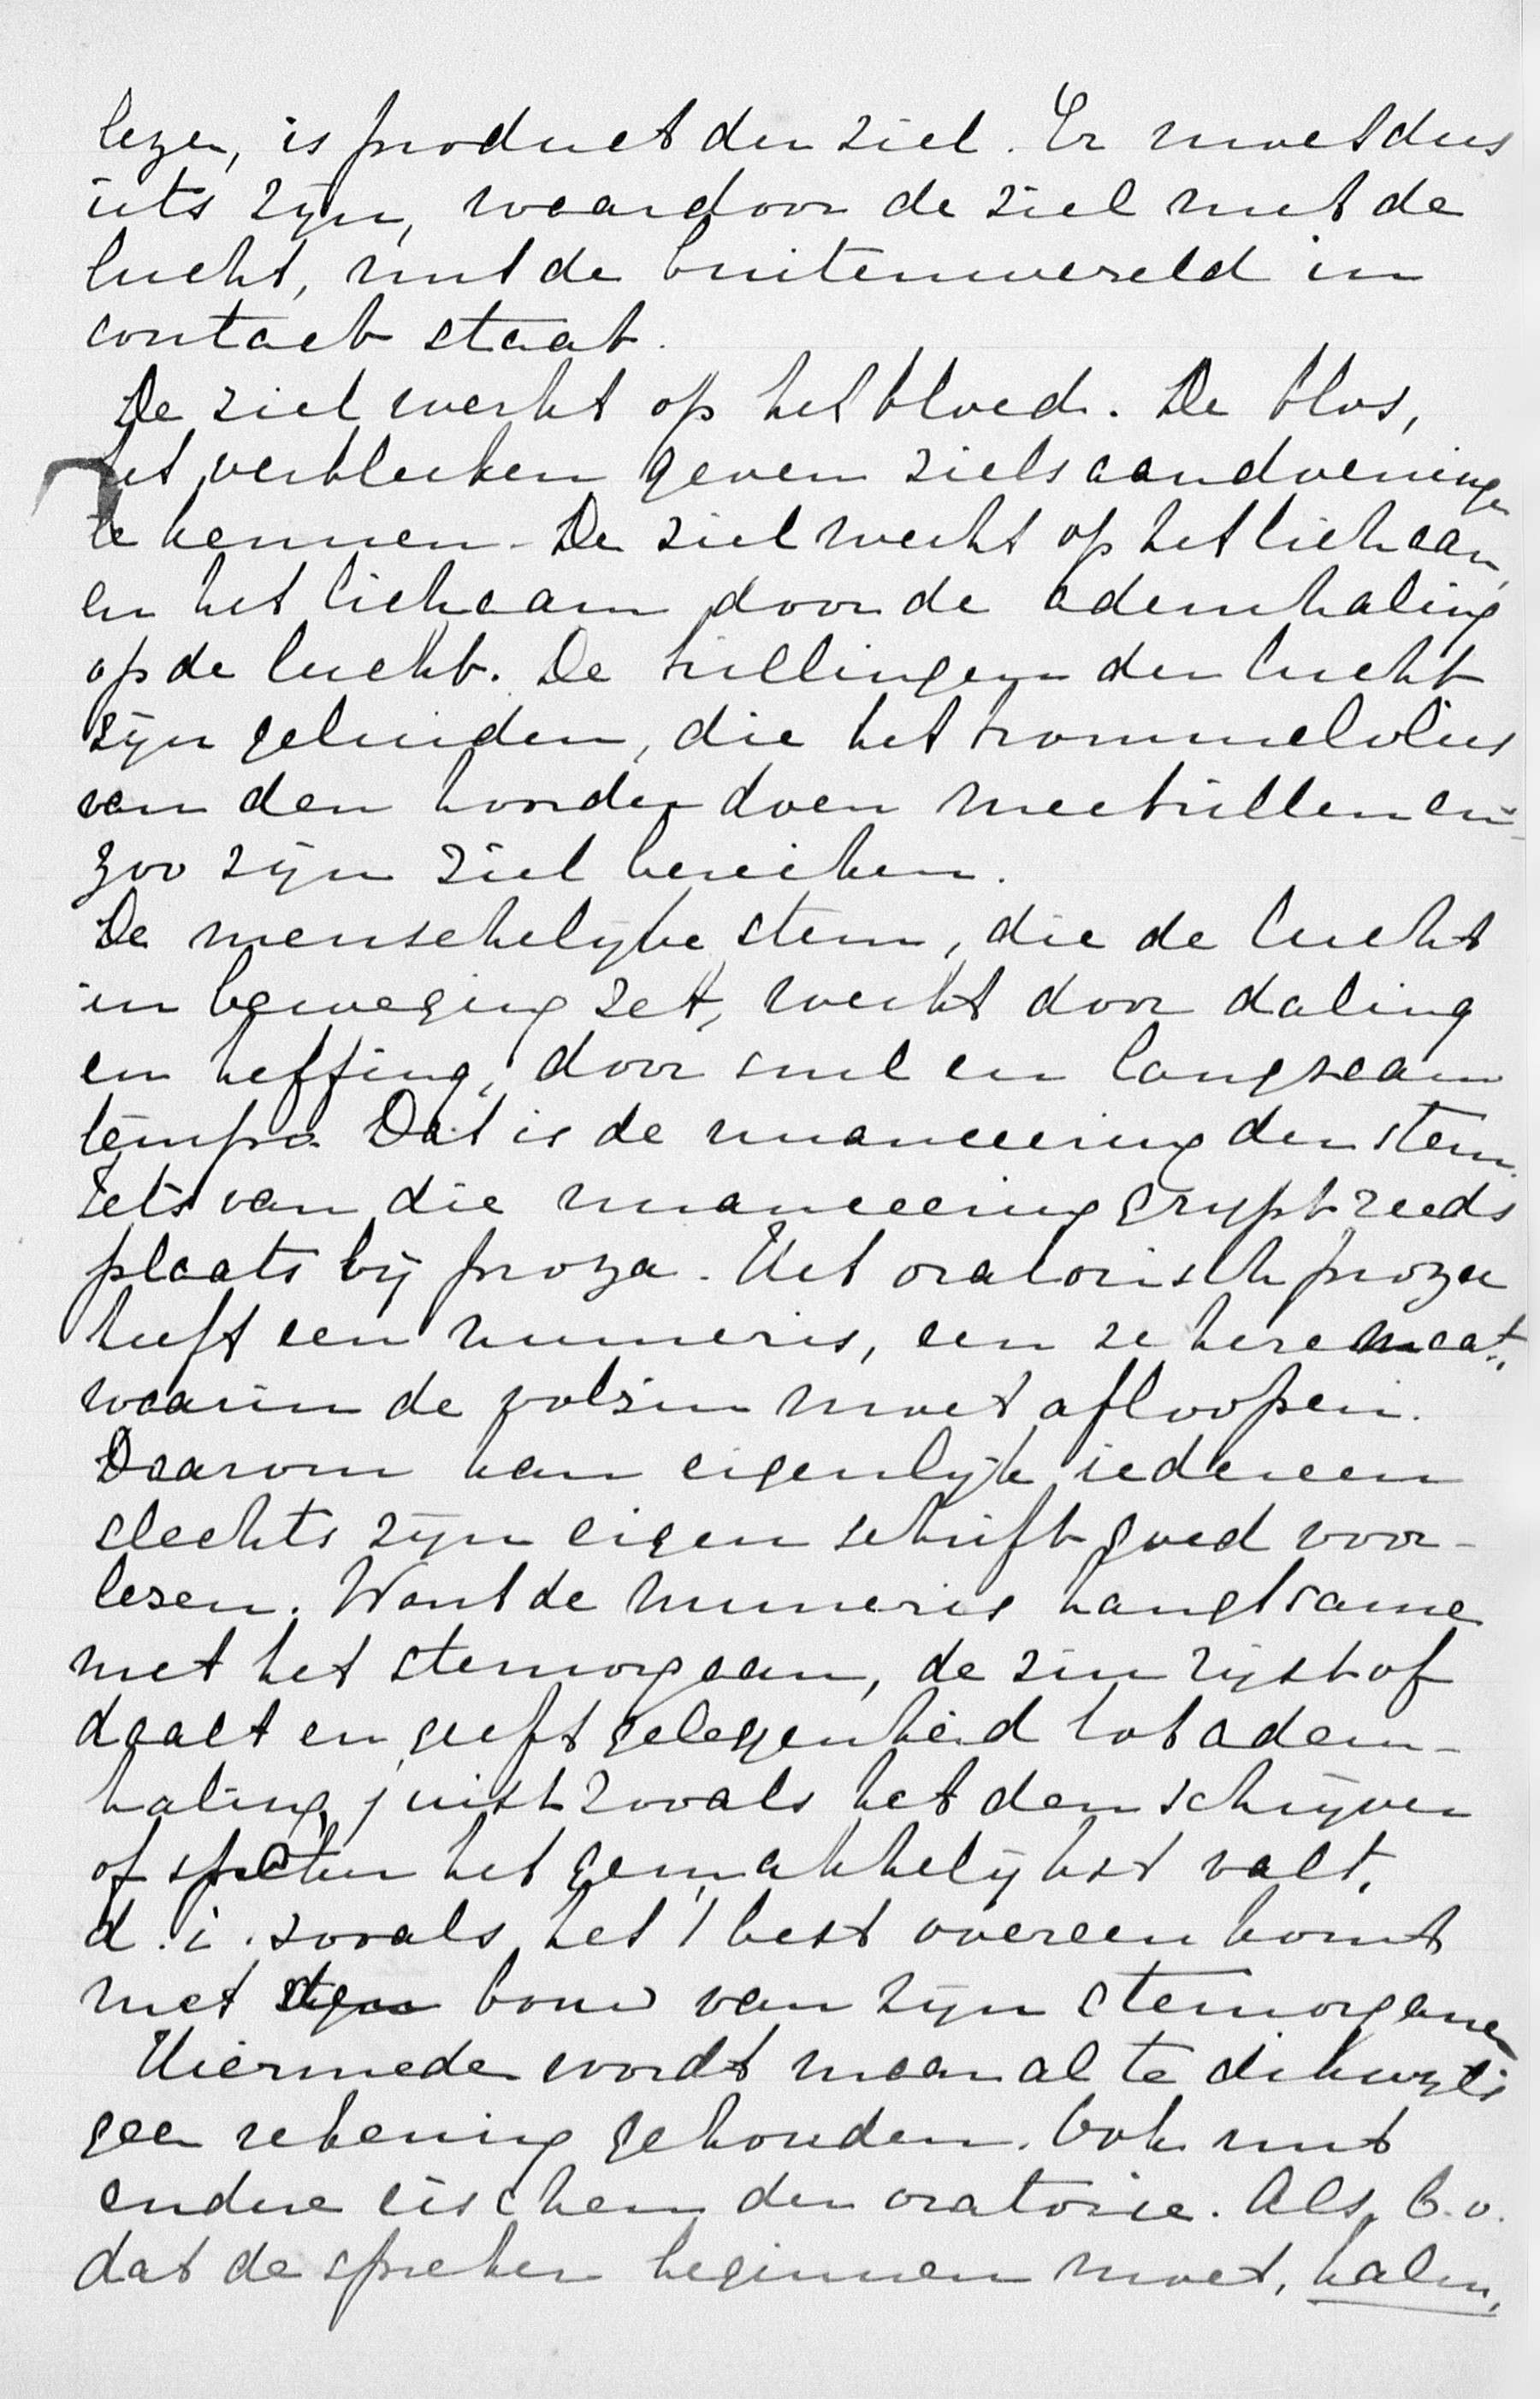 lezen, is product der ziel. Er moet dus
iets zijn, waardoor de ziel met de
lucht, met de buitenwereld in
contact staat.
De ziel werkt op het bloed. De blos,
het verbleeken geven zielsaandoeningen
te kennen. De ziel werkt op het lichaam,
en het lichaam door de ademhaling
op de lucht. De trillingen der lucht
zijn geluiden, die het trommelvlies
van den hoorder doen meetrillen en
zoo zijn ziel bereiken.
De menschelijke stem, die de lucht
in beweging zet, werkt door daling
en heffing, door snel en langzaam
tempo. Dat is de nuanceering der stem.
Iets van die nuanceering grypt reeds
plaats bij proza. Het oratorisch proza
heeft een numeris, een zekere maat,
waarin de volzin moet afloopen.
Daarom kan eigenlijk iedereen
slechts zijn eigen schrift goed voor-
lezen. Want de numeris hangt same
met het stemorgaan, de zin rijst of
daalt en geeft gelegenheid tot adem-
haling, juist zooals het den schrijver
of spreker het gemakkelijkst valt,
d.i. zooals het 't best overeenkomt
met bouw van zijn stemorganen
Hiermede wordt maar al te dikwijls
geen rekening gehouden. Ook met
andere eischen der oratorie. Als b.v.
dat de spreker beginnen moet, kalm,